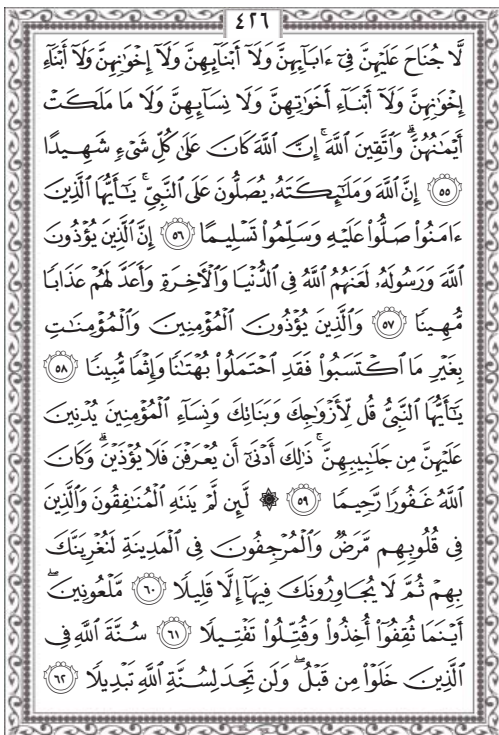 ٤٢٦
لَّا جُنَاحَ عَلَيْهِنَّ فِىٓ ءَابَآئِهِنَّ وَلَآ أَبْنَآئِهِنَّ وَلَآ إِخْوَٰنِهِنَّ وَلَآ أَبْنَآءِ
إِخْوَٰنِهِنَّ وَلَآ أَبْنَآءِ أَخَوَٰتِهِنَّ وَلَا نِسَآئِهِنَّ وَلَا مَا مَلَكَتْ
أَيْمَٰنُهُنَّ ۗ وَٱتَّقِينَ ٱللَّهَ ۚ إِنَّ ٱللَّهَ كَانَ عَلَىٰ كُلِّ شَىْءٍ شَهِيدًا
۝٥٥ إِنَّ ٱللَّهَ وَمَلَٰٓئِكَتَهُۥ يُصَلُّونَ عَلَى ٱلنَّبِىِّ ۚ يَٰٓأَيُّهَا ٱلَّذِينَ
ءَامَنُوا۟ صَلُّوا۟ عَلَيْهِ وَسَلِّمُوا۟ تَسْلِيمًا ۝٥٦ إِنَّ ٱلَّذِينَ يُؤْذُونَ
ٱللَّهَ وَرَسُولَهُۥ لَعَنَهُمُ ٱللَّهُ فِى ٱلدُّنْيَا وَٱلْءَاخِرَةِ وَأَعَدَّ لَهُمْ عَذَابًا
مُّهِينًا ۝٥٧ وَٱلَّذِينَ يُؤْذُونَ ٱلْمُؤْمِنِينَ وَٱلْمُؤْمِنَٰتِ
بِغَيْرِ مَا ٱكْتَسَبُوا۟ فَقَدِ ٱحْتَمَلُوا۟ بُهْتَٰنًا وَإِثْمًا مُّبِينًا ۝٥٨
يَٰٓأَيُّهَا ٱلنَّبِىُّ قُل لِّأَزْوَٰجِكَ وَبَنَاتِكَ وَنِسَآءِ ٱلْمُؤْمِنِينَ يُدْنِينَ
عَلَيْهِنَّ مِن جَلَٰبِيبِهِنَّ ۚ ذَٰلِكَ أَدْنَىٰٓ أَن يُعْرَفْنَ فَلَا يُؤْذَيْنَ ۗ وَكَانَ
ٱللَّهُ غَفُورًا رَّحِيمًا ۝٥٩ ۞ لَّئِن لَّمْ يَنتَهِ ٱلْمُنَٰفِقُونَ وَٱلَّذِينَ
فِى قُلُوبِهِم مَّرَضٌ وَٱلْمُرْجِفُونَ فِى ٱلْمَدِينَةِ لَنُغْرِيَنَّكَ
بِهِمْ ثُمَّ لَا يُجَاوِرُونَكَ فِيهَآ إِلَّا قَلِيلًا ۝٦٠ مَّلْعُونِينَ ۖ
أَيْنَمَا ثُقِفُوٓا۟ أُخِذُوا۟ وَقُتِّلُوا۟ تَقْتِيلًا ۝٦١ سُنَّةَ ٱللَّهِ فِى
ٱلَّذِينَ خَلَوْا۟ مِن قَبْلُ ۖ وَلَن تَجِدَ لِسُنَّةِ ٱللَّهِ تَبْدِيلًا ۝٦٢